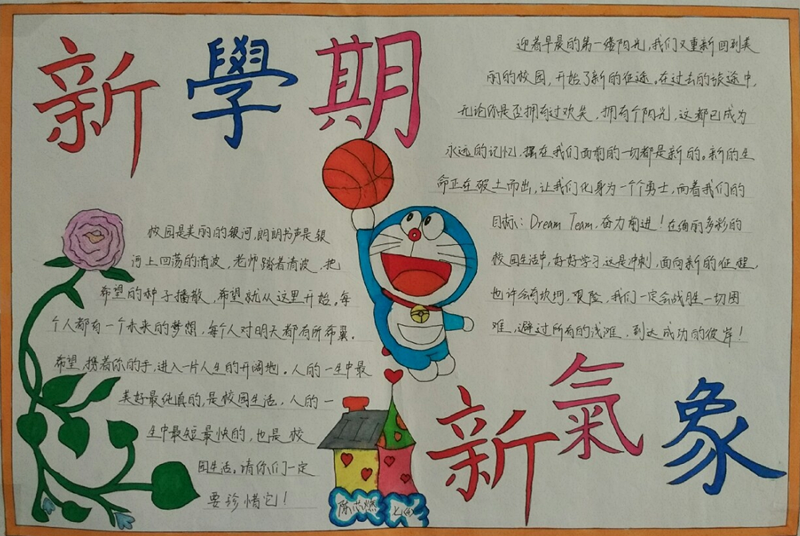 新學期
迎着早晨的第一缕阳光,我们又重新回到美
丽的校园,开始了新的征途。在过去的旅途中,
无论你是否拥有过欢笑,拥有个阳光,这都已成为
永远的记忆,摆在我们面前的一切都是新的。新的生
命正在破土而出,让我们化身为一个个勇士,向着我们的
目标:Dream Team,奋力前进!在绚丽多彩的
校园生活中,好好学习,这是冲刺,面向新的征程,
也许会有坎坷,艰险,我们一定会战胜一切困
难,避过所有的浅滩,到达成功的彼岸!
校园是美丽的银河,朗朗书声是银
河上回荡的清波,老师踏着清波,把
希望的种子播散,希望就从这里开始,每
个人都有一个未来的梦想,每个人对明天都有所希翼。
希望,携着你的手,进入一片人生的开阔地。人的一生中最
美好最纯真的,是校园生活,人的一
生中最短最快的,也是校
园生活。请你们一定
要珍惜它!
新氣象